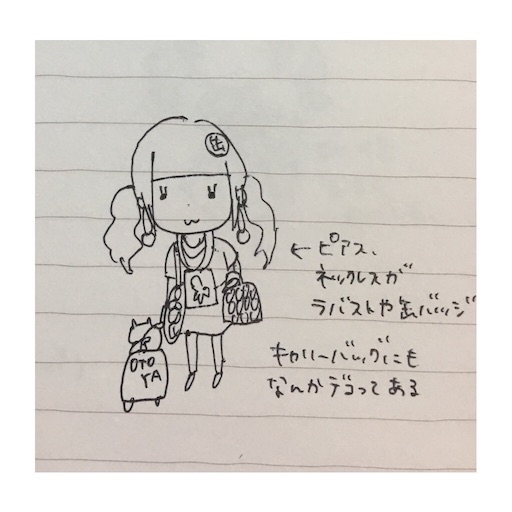 缶
←ピアス、
ネックレスが
ラバストや缶バッジ
キャリーバッグにも
なんかデコってある
OTO
YA